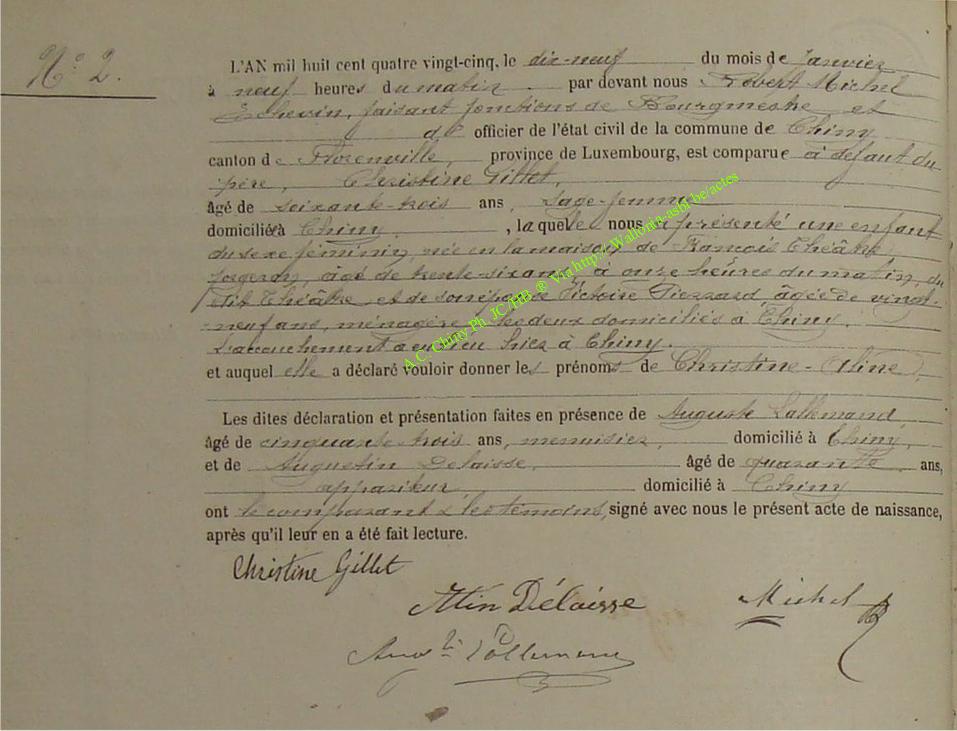 N° 2.
L'AN mil huit cent quatre vingt-cinq, le dix-neuf du mois de Janvier
à neuf heures du matin par devant nous Robert Michel
Echevin, faisant fonctions de Bourgmestre et
d officier de l'état civil de la commune de Chiny
canton de Florenville, province de Luxembourg, est comparue à défaut du
père, Christine Gillet,
âgé de soixante-trois ans, sage-femme
domiciliée à Chiny, laquelle nous a présenté une enfant
du sexe féminin, née en la maison de François Théâtre
forgeron, âgé de trente-six ans, à onze heures du matin, du
dit Théâtre et de son épouse Victoire Pierrard, âgée de vingt-
neuf ans, ménagère, les deux domiciliés à Chiny.
L'accouchement a eu lieu hier à Chiny.
et auquel elle a déclaré vouloir donner les prénoms de Christine-Aline.
Les dites déclaration et présentation faites en présence de Auguste Lallemand,
âgé de cinquante trois ans, menuisier, domicilié à Chiny,
et de Augustin Delaisse, âgé de quarante ans,
appariteur, domicilié à Chiny
ont le comparant & les témoins, signé avec nous le présent acte de naissance,
après qu'il leur en a été fait lecture.
Christine Gillet
Atin Délaisse
Michel
Aug.te Lallemand
A.C. Chiny Ph JC/HB @ Via http://Wallonia-asbl.be/actes